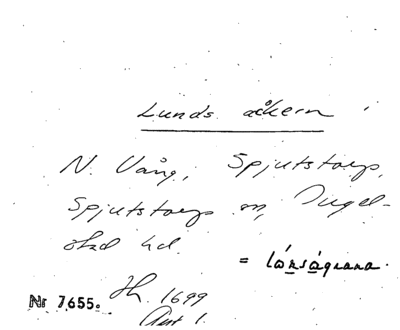 Lunds åkern
N. Vång, Spjutstorp,
Spjutstorps sn, Ingel-
stad hd.
= 
Nr 7655.
Jh. 1699
Akt 1.